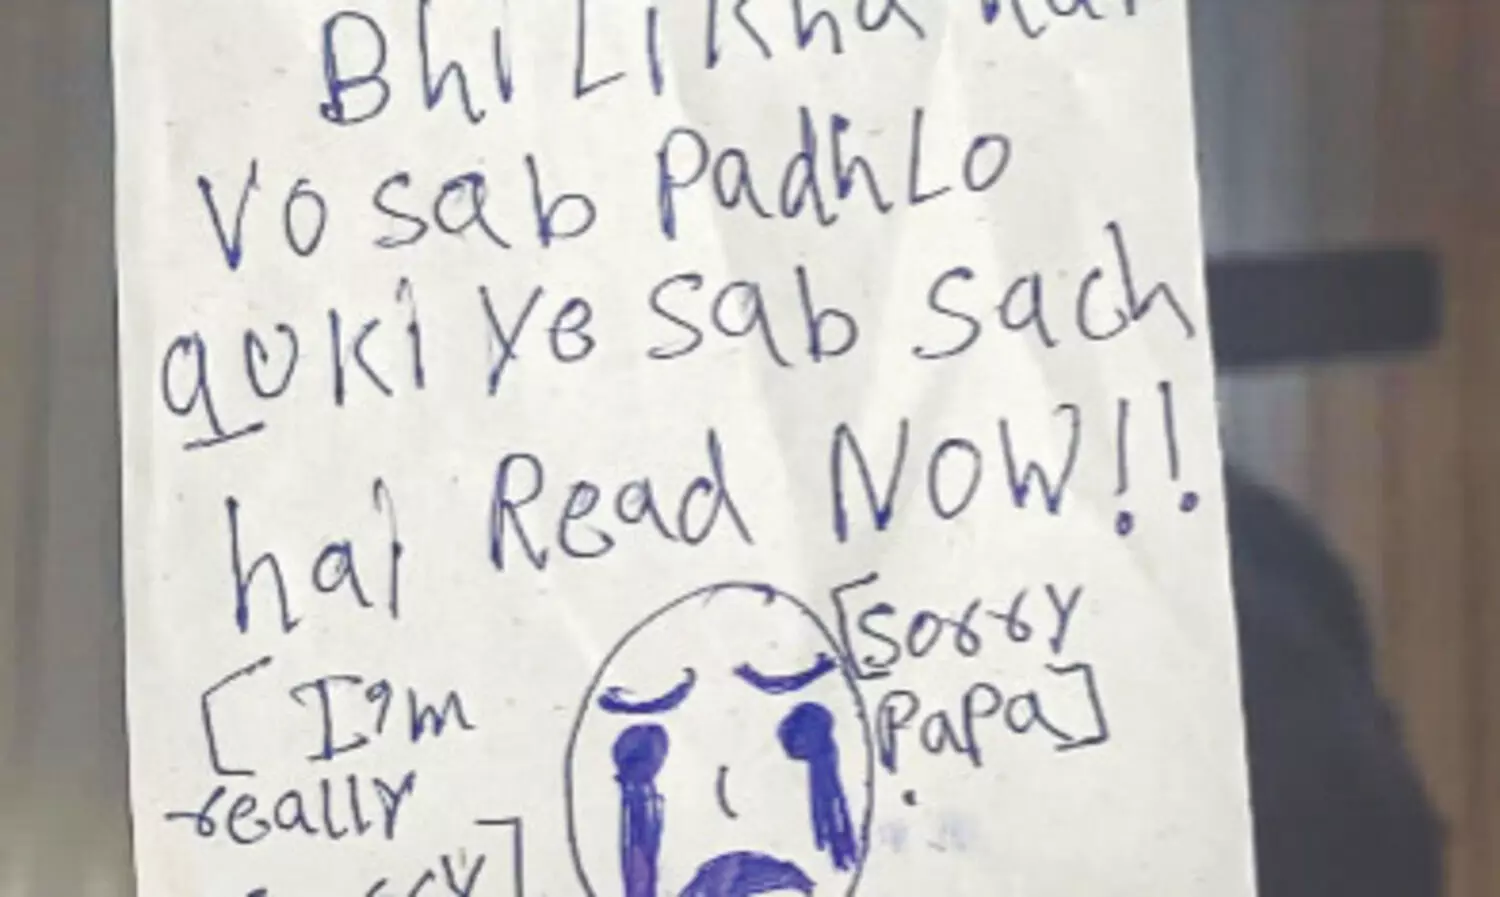 Bhi Likha hai
Vo sab Padh Lo
quki Ye sab sach
hai Read NOW!!
[Sorry
Papa]
[I'm
really
sorry]